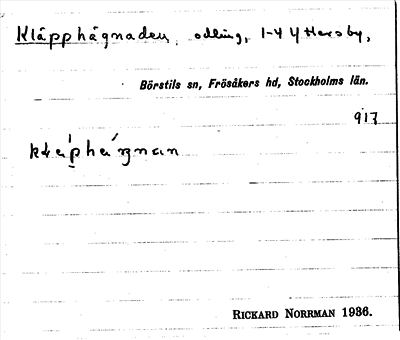 Kläpphägnaden, odling, 1-4 Ytternsby,
Börstils sn, Frösåkers hd, Stockholms län.
917
RICKARD NORRMAN 1936.